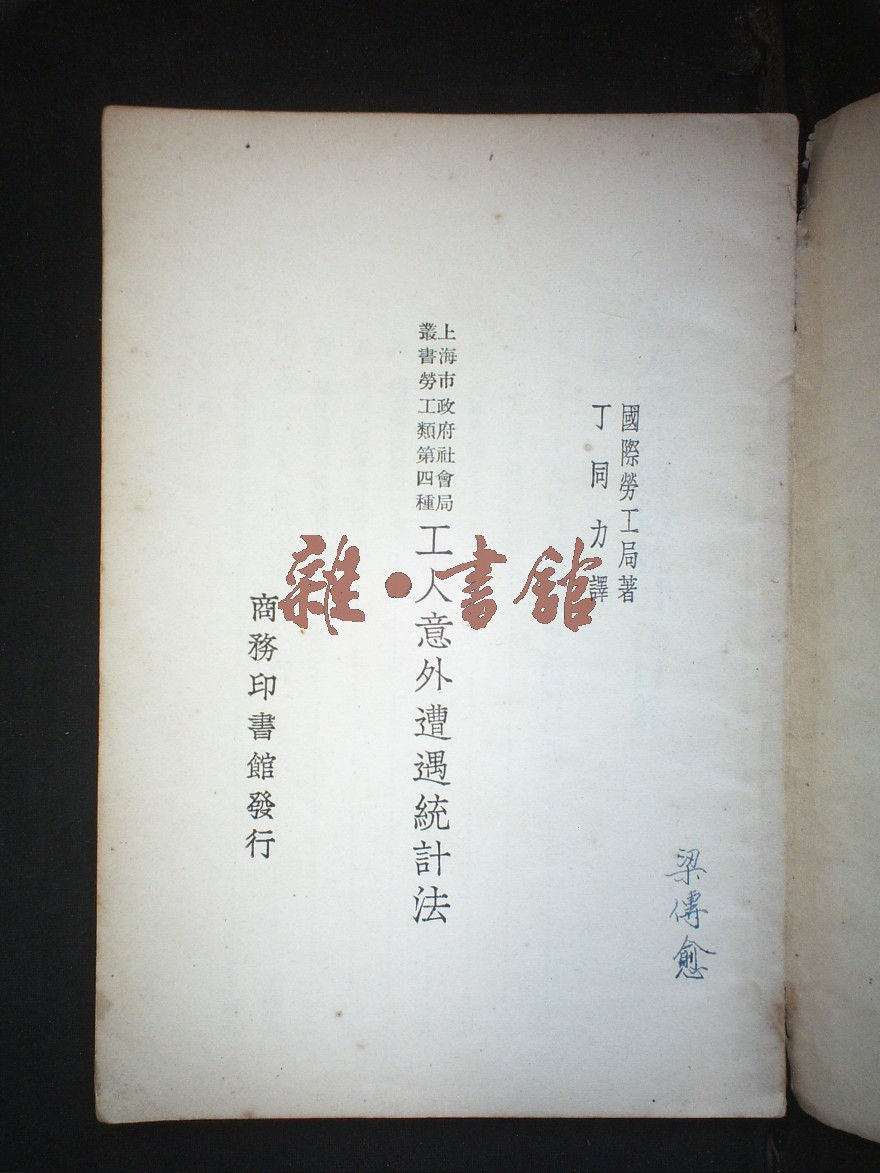 國際勞工局著
丁同力譯
上海市政府社會局
叢書勞工類第四種
工人意外遭遇統計法
商務印書館發行
梁傳愈
雜·書館